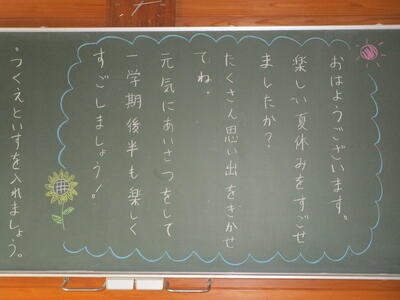 おはようございます。
楽しい夏休みをすごせ
ましたか？
たくさん思い出をきかせ
てね。
元気にあいさつをして
一学期後半も楽しく
すごしましょう！
。つくえといすを入れましょう。